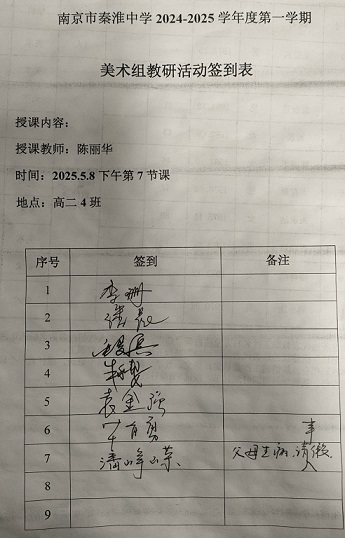 南京市秦淮中学 2024-2025 学年度第一学期
美术组教研活动签到表
授课内容：
授课教师：陈丽华
时间：2025.5.8 下午第 7 节课
地点：高二 4 班
序号 签到 备注
1 李珊
2
3
4
5 袁金强
6 事
7 潘峥嵘 父母生病,请假
8
9